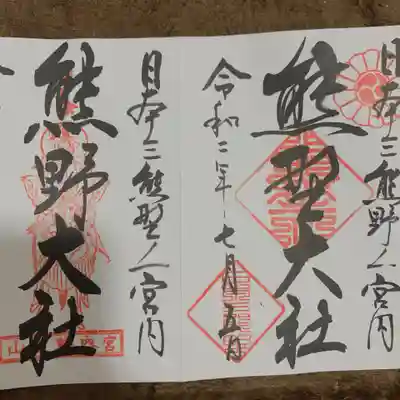 日本三熊野ノ宮内
熊野大社
令和二年七月五日
日本三熊野ノ宮内
熊野大社
令